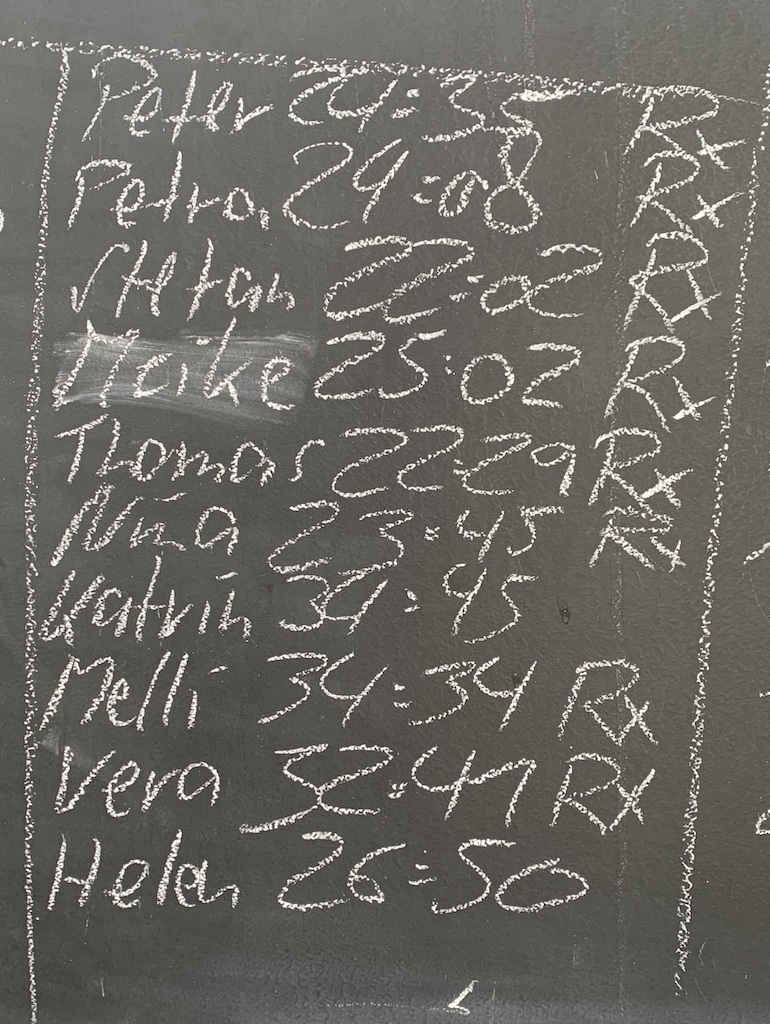 Peter 24:35 Rx
Petra 29:08 Rx
Stefan 22:02 Rx
Meike 25:02 Rx
Thomas 22:29 Rx
Nina 23:45 Rx
Katrin 34:45
Melli 34:34 Rx
Vera 32:41 Rx
Helen 26:50